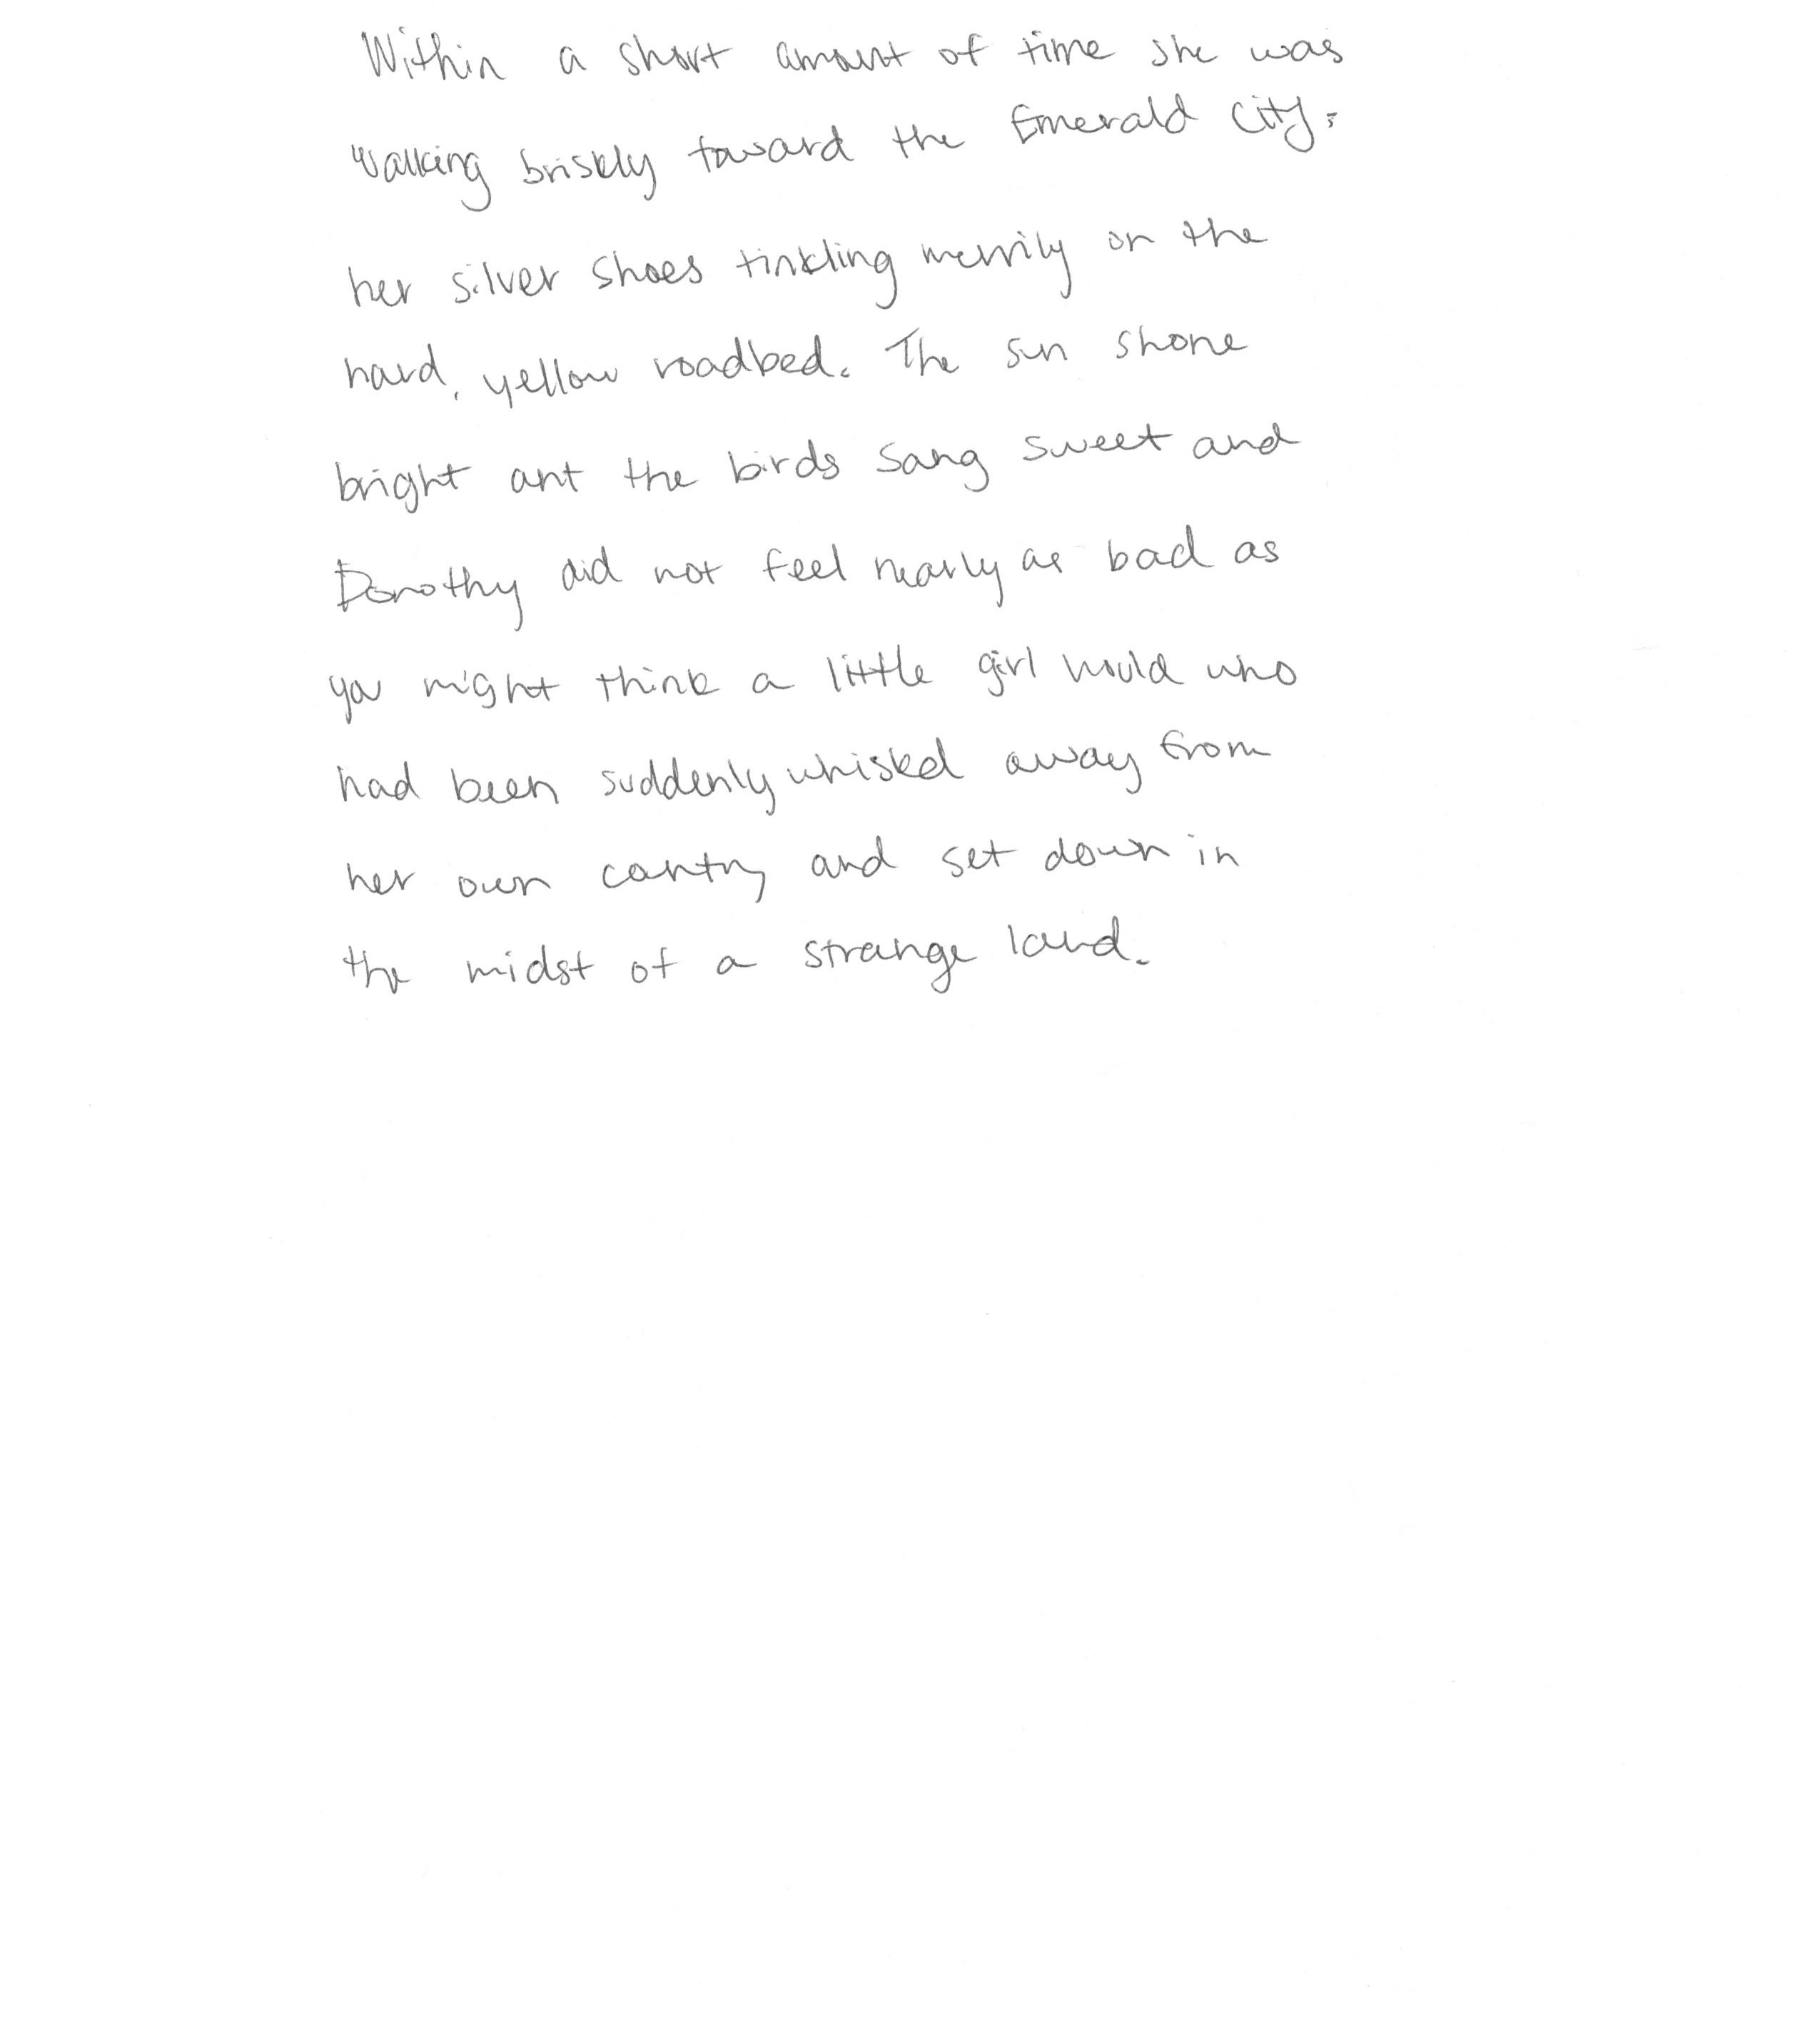 Within a short amount of time she was
walking briskly toward the Emerald City,
her silver shoes tinkling merrily on the
hard, yellow roadbed. The sun shone
bright ant the birds sang sweet and
Dorothy did not feel nearly as bad as
you might think a little girl would who
had been suddenly whisked away from
her own country and set down in
the midst of a strange land.